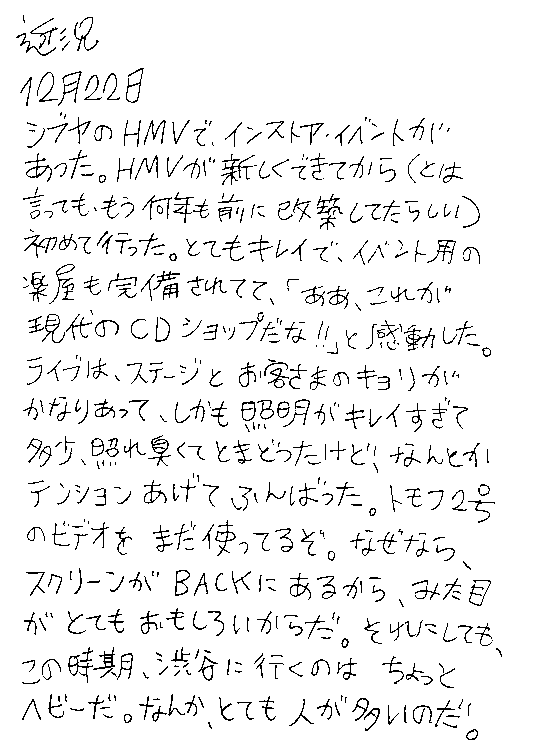 近況
12月22日
シブヤのHMVで、インストア・イベントが
あった。HMVが新しくできてから(とは
言っても、もう何年も前に改築してたらしい)
初めて行った。とてもキレイで、イベント用の
楽屋も完備されてて、「ああ、これが
現代のCDショップだな!!」と感動した。
ライブは、ステージとお客さまのキョリが
かなりあって、しかも照明がキレイすぎて
多少、照れ臭くてとまどったけど、なんとか
テンションあげてふんばった。トモフ2号
のビデオをまだ使ってるぞ。なぜなら、
スクリーンがBACKにあるから、みた目
がとてもおもしろいからだ。それにしても、
この時期、渋谷に行くのはちょっと
ヘビーだ。なんか、とても人が多いのだ。